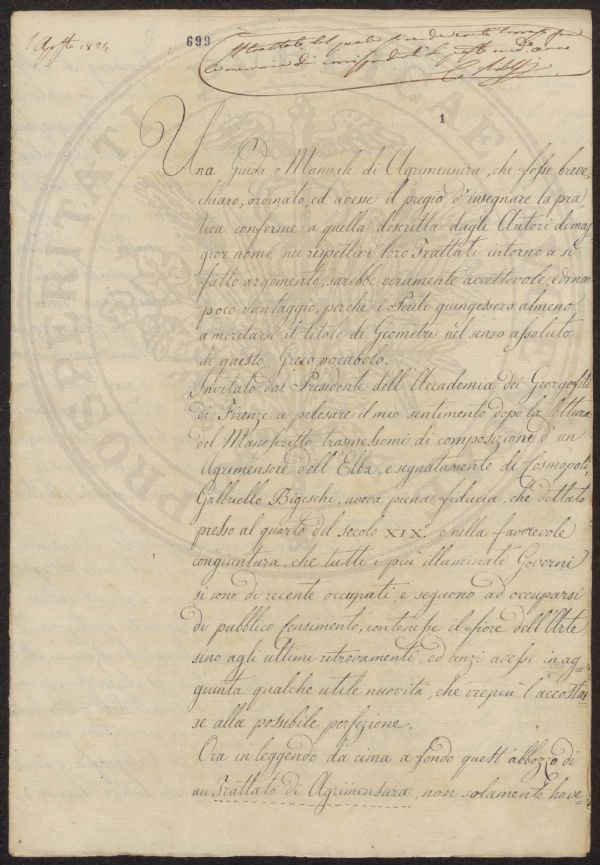 1 Agosto 1824
699
Il trattato del quale si rende conto trovasi fra
le memorie di corrispondenti di questo med.o anno
1
Una Guida, o Manuale di Agrimensura, che fosse breve,
chiaro, ordinato, ed avesse il pregio d'insegnare la pra=
tica conforme a quella descritta dagli Autori di mag=
gior nome nei rispettivi loro Trattati intorno a sì
fatto argomento, sarebbe veramente accettevole, e di non
poco vantaggio, perchè i Periti giungessero almeno
a meritarsi il titolo di Geometri nel senso assoluto
di questo Greco vocabolo.
Invitato dal Presidente dell'Accademia dei Georgofili
di Firenze a palesare il mio sentimento dopo la lettura
del Manoscritto trasmessomi di composizione d'un
Agrimensore dell'Elba, e segnatamente di Cosmopoli,
Gabbriello Bigeschi, aveva piena fiducia, che dettato
presso al quarto del secolo XIX.o e nella favorevole
congiuntura, che tutti i più illuminati Governi
si sono di recente occupati, e seguono ad occuparsi
di pubblico Censimento, contenesse il fiore dell'Arte
sino agli ultimi ritrovamenti, ed anzi avesse in ag=
giunta qualche utile nuovità, che viepiù l'accostas=
se alla possibile perfezione.
Ora in leggendo da cima a fondo quest'abbozzo di
un Trattato di Agrimensura, non solamente hove=
PROSPERITATI PUBLICAE